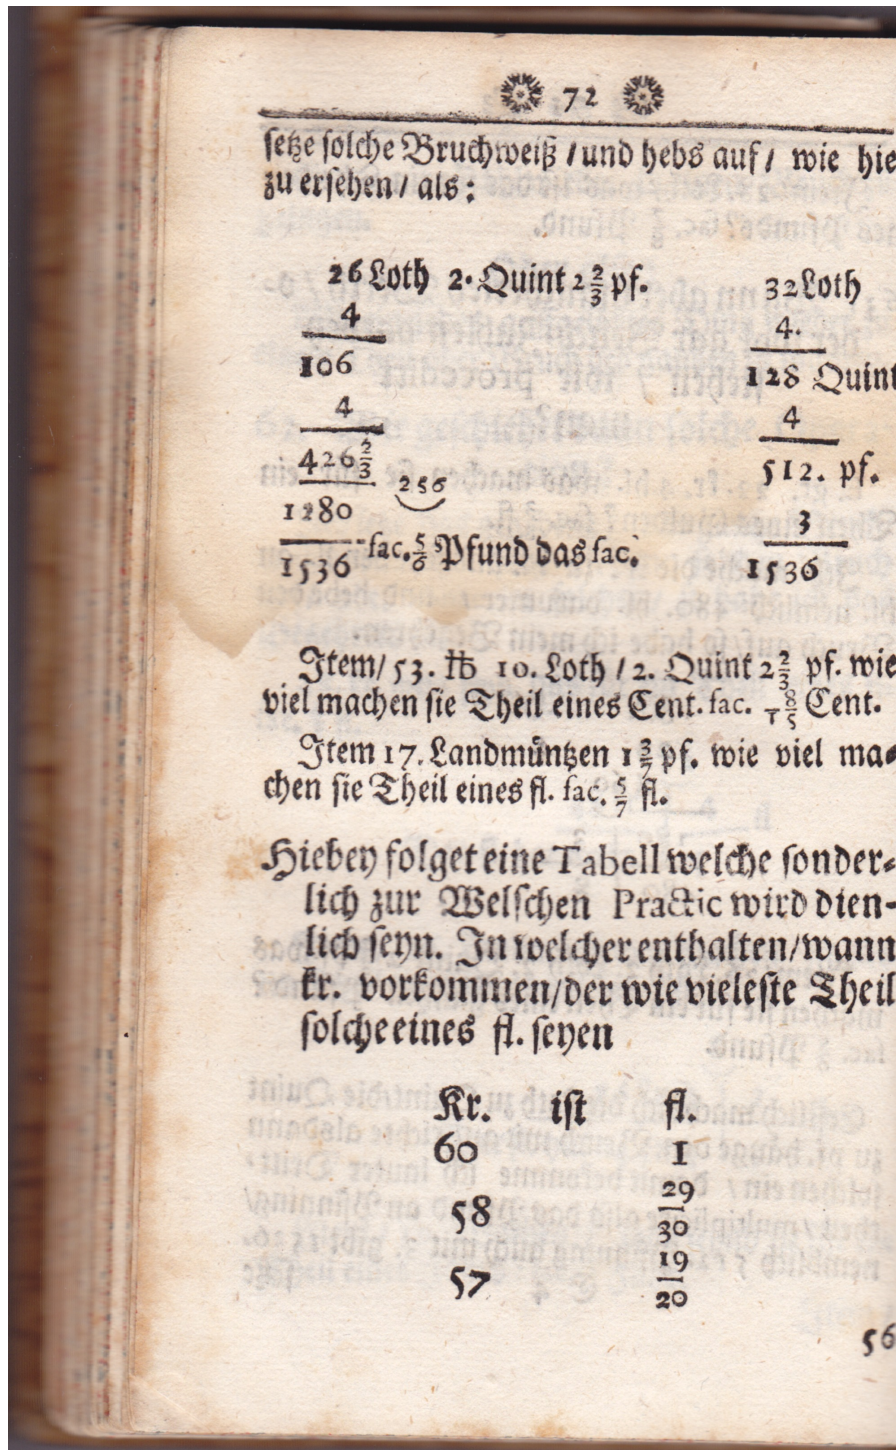 72
setze solche Bruchweiß / und hebs auf / wie hie
zu ersehen / als:
26 Loth 2. Quint 2 2/3 pf. 32 Loth
4 4.
106 128 Quint
4 4
426 2/3 512. pf.
1280 256 3
1536 fac. 5/6 Pfund das fac. 1536
Item / 53. ℔ 10. Loth / 2. Quint 2 2/3 pf. wie
viel machen sie Theil eines Cent. fac. 8/15 Cent.
Item 17. Landmüntzen 1 3/7 pf. wie viel ma-
chen sie Theil eines fl. fac. 5/7 fl.
Hiebey folget eine Tabell welche sonder-
lich zur Welschen Practic wird dien-
lich seyn. In welcher enthalten / wann
kr. vorkommen / der wie vieleste Theil
solche eines fl. seyen
Kr. ist fl.
60 1
58 29/30
57 19/20
56